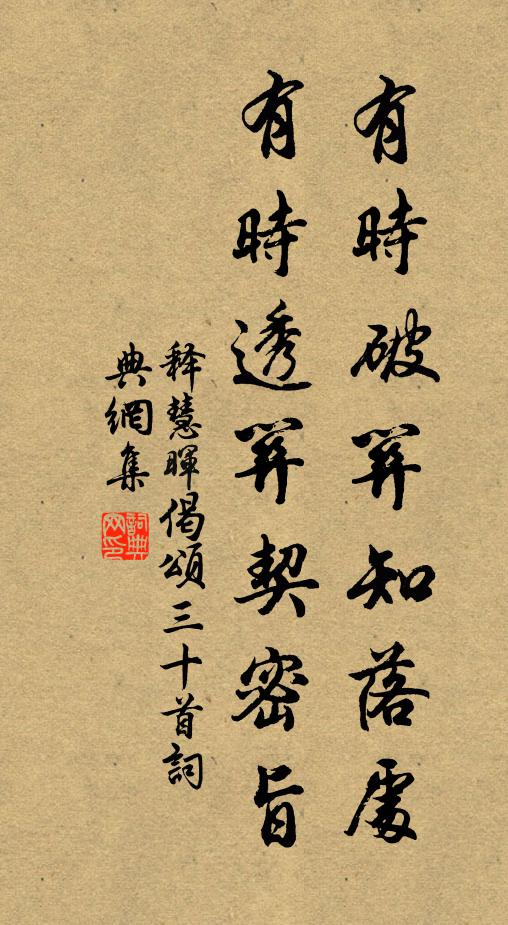 有時破關知落處
有時透關契密旨
釋慧暉偈頌三十首詞
典網集
詞典
网印